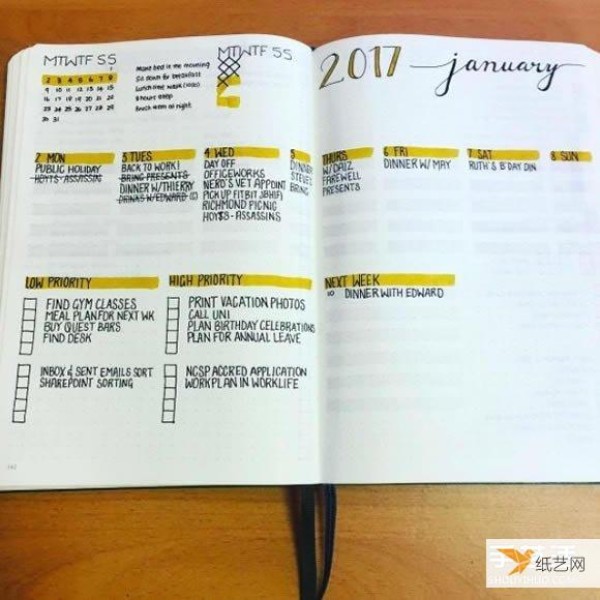 MTWTF SS
1
2 3 4 5 6 7 8
9 10 11 12 13 14 15
16 17 18 19 20 21 22
23 24 25 26 27 28 29
30 31
MTWTF SS
Make bed in the morning
Sit down for breakfast
Lunch time walk
8 hours sleep
Brush at night
2017 january
2 MON
PUBLIC HOLIDAY
HOYTS - ASSASSINS
3 TUES
BACK TO WORK!
BRING PRESENTS
DINNER W/THIERRY
DRINKS W/EDWARD
4 WED
DAY OFF
OFFICEWORKS
NERO'S VET APPOINT
PICK UP FITBIT JBHIFI
RICHMOND PICNIC
HOYTS - ASSASSINS
5 THURS
DINNER W/DAIZ
STEVE FAREWELL
BRING PRESENTS
6 FRI
DINNER W/ MAY
7 SAT
RUTH'S B'DAY DIN
8 SUN
LOW PRIORITY
FIND GYM CLASSES
MEAL PLAN FOR NEXT WK
BUY QUEST BARS
FIND DESK
INBOX & SENT EMAILS SORT
SHAREPOINT SORTING
HIGH PRIORITY
PRINT VACATION PHOTOS
CALL UNI
PLAN BIRTHDAY CELEBRATIONS
PLAN FOR ANNUAL LEAVE
NCSP ACCRED APPLICATION
WORKPLAN IN WORKLIFE
NEXT WEEK
10 DINNER WITH EDWARD
纸艺网